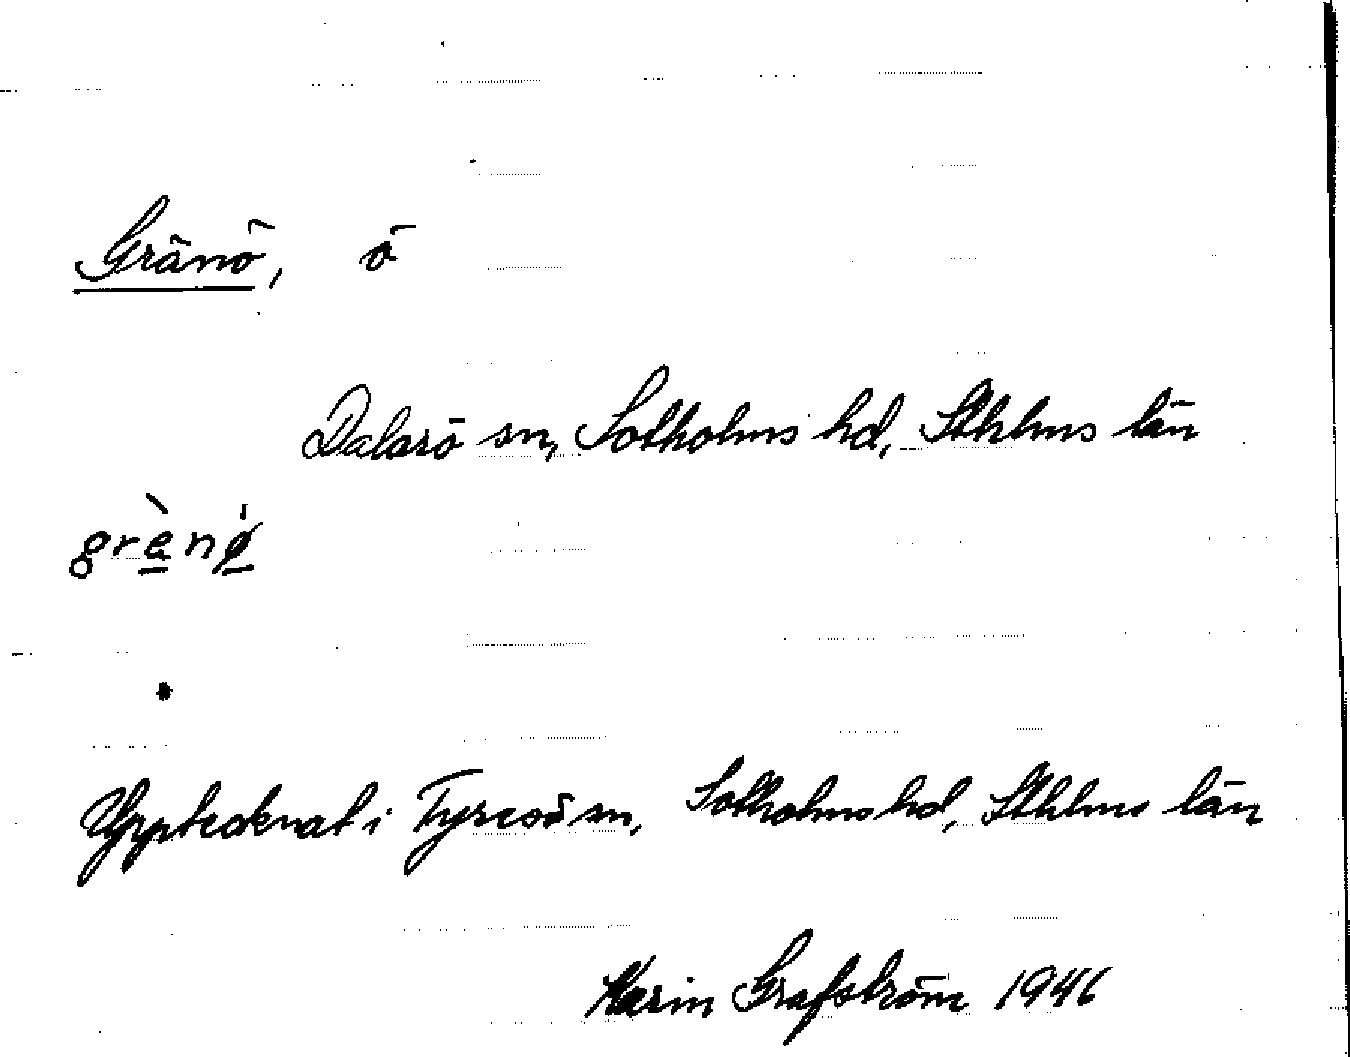 Gränö, ö
Dalarö sn, Sotholms hd, Sthlms län
grènø
Upptecknat i Tyresö sn, Sotholms hd, Sthlms län
Karin Grafström 1946